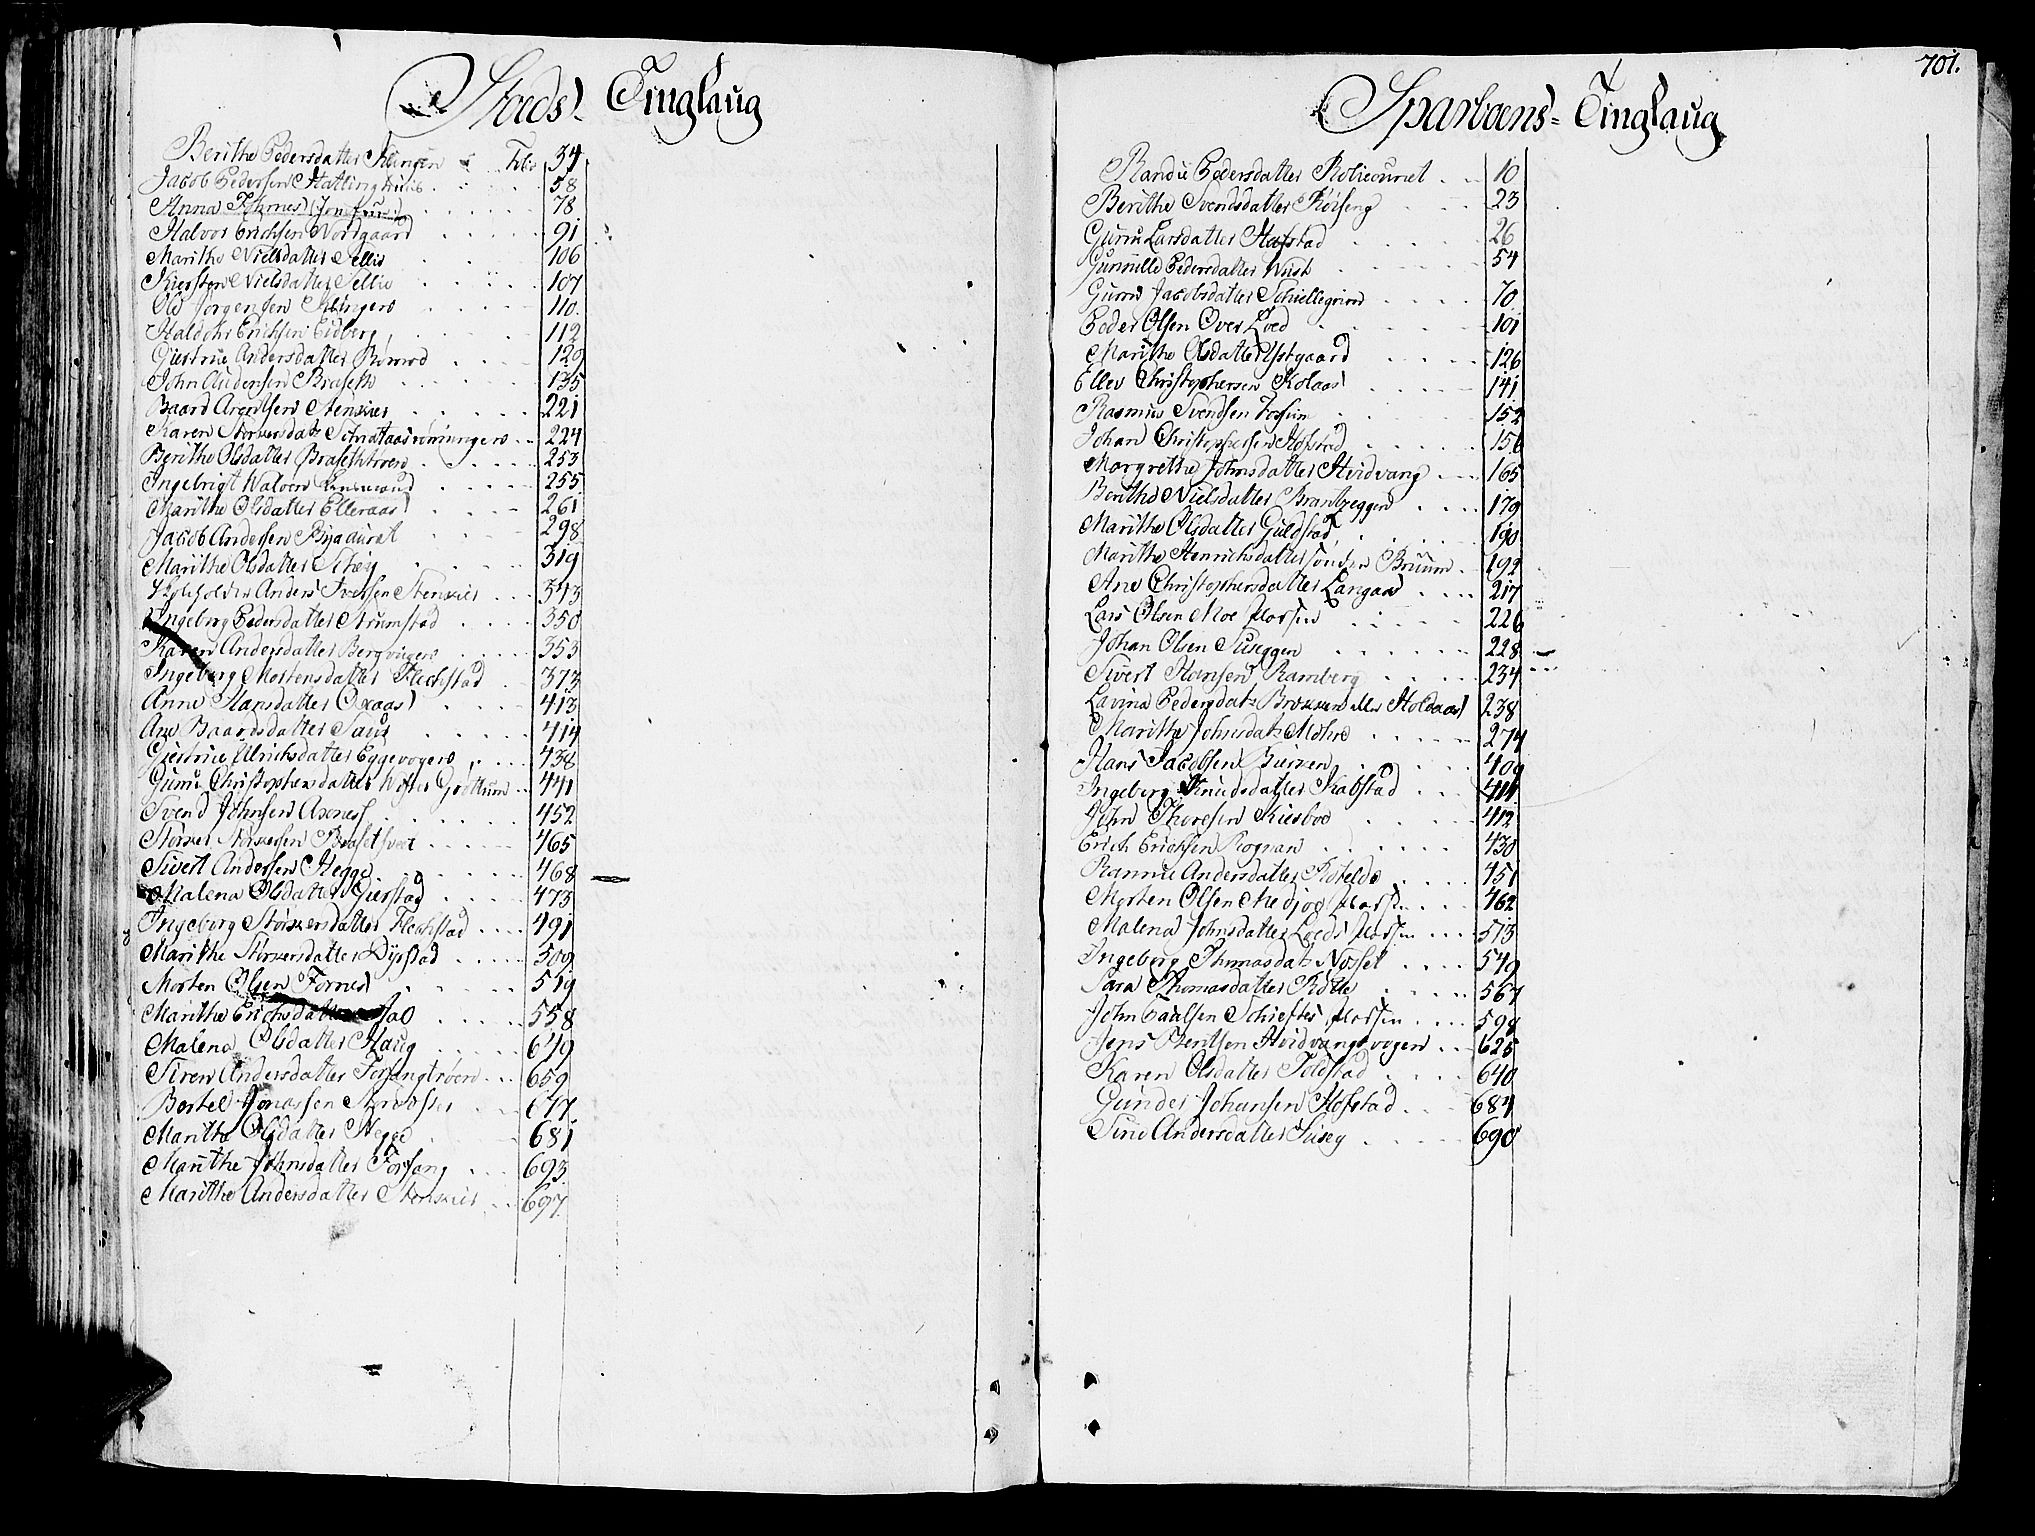 Stods Tinglaug
Berithe Pedersdatter Klingen Fol: 34
Jacob Pedersen 58
Anna 78
Halvor Erichsen Nordgaard 91
Marithe Nielsdatter Sellie 106
Kiersten Nielsdatter Sellie 107
Ole Jørgensen Klingen 110
Erichsen Eidberg 112
Giertrue Andersdatter 120
John Andersen Braseth 135
Baard Arentsen Stenkier 221
Karen 224
Berithe Olsdatter Brasethtrøen 253
Ingebrigt 255
Marithe Olsdatter Elleraas 261
Jacob Andersen 298
Marithe Olsdatter 319
Anders Iversen Stenkier 343
Ingeborg Pedersdatter Strumstad 350
Karen Andersdatter Bergvugen 353
Ingeborg Mortensdatter Flechstad 373
Anne Hansdatter Oxaas 413
Ane Baardsdatter Saur 414
Giertrue Ulrichsdatter Eggevogen 438
Guru Christophersdatter Wester Giøttum 441
Svend Johnsen Axnes 452
Størker Størkersen 465
Sivert Andersen Hegge 468
Malena Olsdatter Gierstad 473
Ingeborg Størkersdatter Flechstad 491
Marithe Størkersdatter Dyrstad 509
Morten Olsen Fornes 519
Marithe Erichsdatter 558
Malena Olsdatter Haug 649
Siren Andersdatter Forfangtrøen 659
Bertel Jonassen 677
Marithe Olsdatter Hegge 681
Marithe Johnsdatter Forfang 693
Marithe Andersdatter Stenkier 697
701.
Sparboens Tinglaug
Randie Pedersdatter 10
Berithe Svendsdatter Kørseng 23
Guru Larsdatter Hofstad 26
Gunnille Pedersdatter Wiist 54
Guru Jacobsdatter Schiellegrind 70
Peder Olsen Over Loed 101
Marithe Olsdatter Ystgaard 126
Ellev Christophersen Kolaas 141
Rasmus Svendsen 152
Johan Christophersen Hofstad 156
Margrethe Johnsdatter Hvidvang 165
Berithe Nielsdatter Brandzeggen 179
Marithe Olsdatter Guldstad 190
Marithe Henrichsdatter Sønden Bruum 192
Ane Christophersdatter Langaas 217
Lars Olsen Moe 226
Johan Olsen Suseggen 228
Sivert Hansen Ramberg 234
Lavina Pedersdat: eller Holdaas 238
Marithe Johnsdat: Mohre 274
Hans Jacobsen 409
Ingeborg Knudsdatter Kalstad 411
John Thoresen Kiesboe 412
Erich Erichsen Rognan 430
Rannie Andersdatter 451
Morten Olsen 462
Malena Johnsdatter Loeds 513
Ingeborg Thomasdat: Nosset 549
Sara Thomasdatter 567
John Paulsen Schieftes 598
Jens Bentsen Hvidvangsvogen 625
Karen Olsdatter Toldstad 640
Gunder Johansen Hofstad 684
Sine Andersdatter Suseg 690